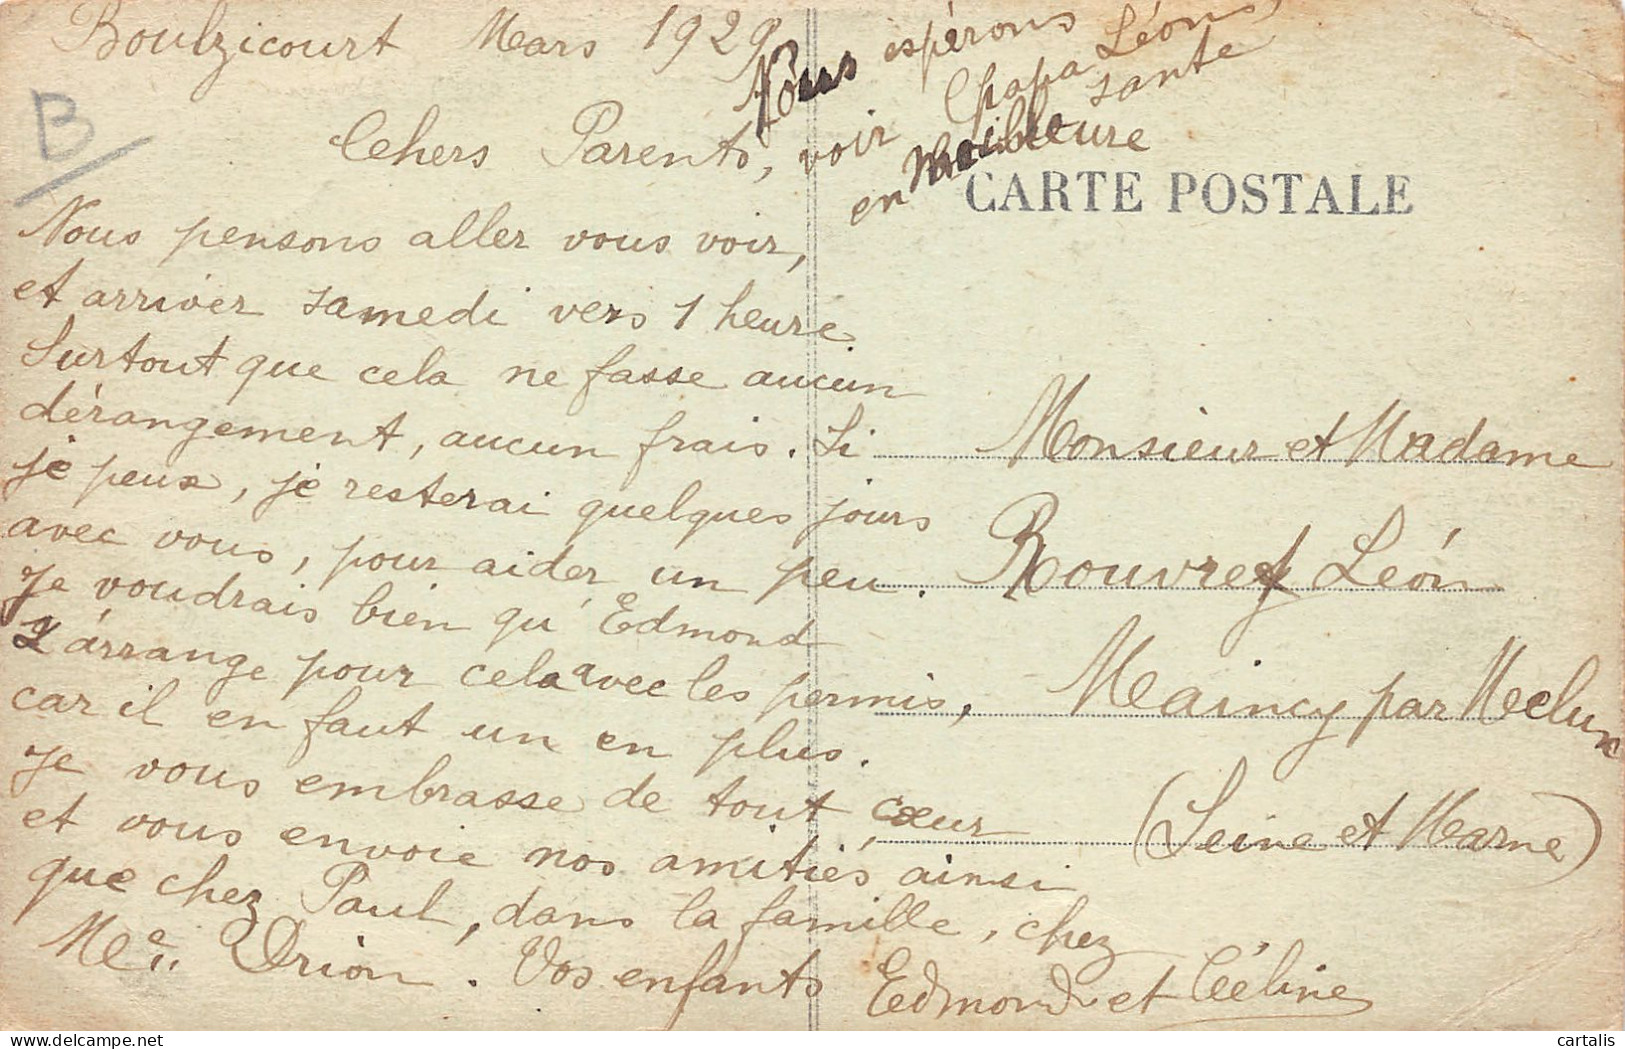 Boulzicourt Mars 1929
Chers Parents,
Nous pensons aller vous voir,
et arriver samedi vers 1 heure
Surtout que cela ne fasse aucun
dérangement, aucun frais. Si
je peux, je resterai quelques jours
avec vous, pour aider un peu.
Je voudrais bien qu'Edmond
s'arrange pour cela avec les permis,
car il en faut un en plus.
Je vous embrasse de tout cœur
et vous envoie nos amitiés ainsi
que chez Paul, dans la famille, chez
Me Drion. Vos enfants Edmond et Céline
Nous espérons
voir papa Léon,
en meilleure santé
B
CARTE POSTALE
Monsieur et Madame
Rouvref Léon
Maincy par Melun
(Seine et Marne)
cartalis
www.delcampe.net